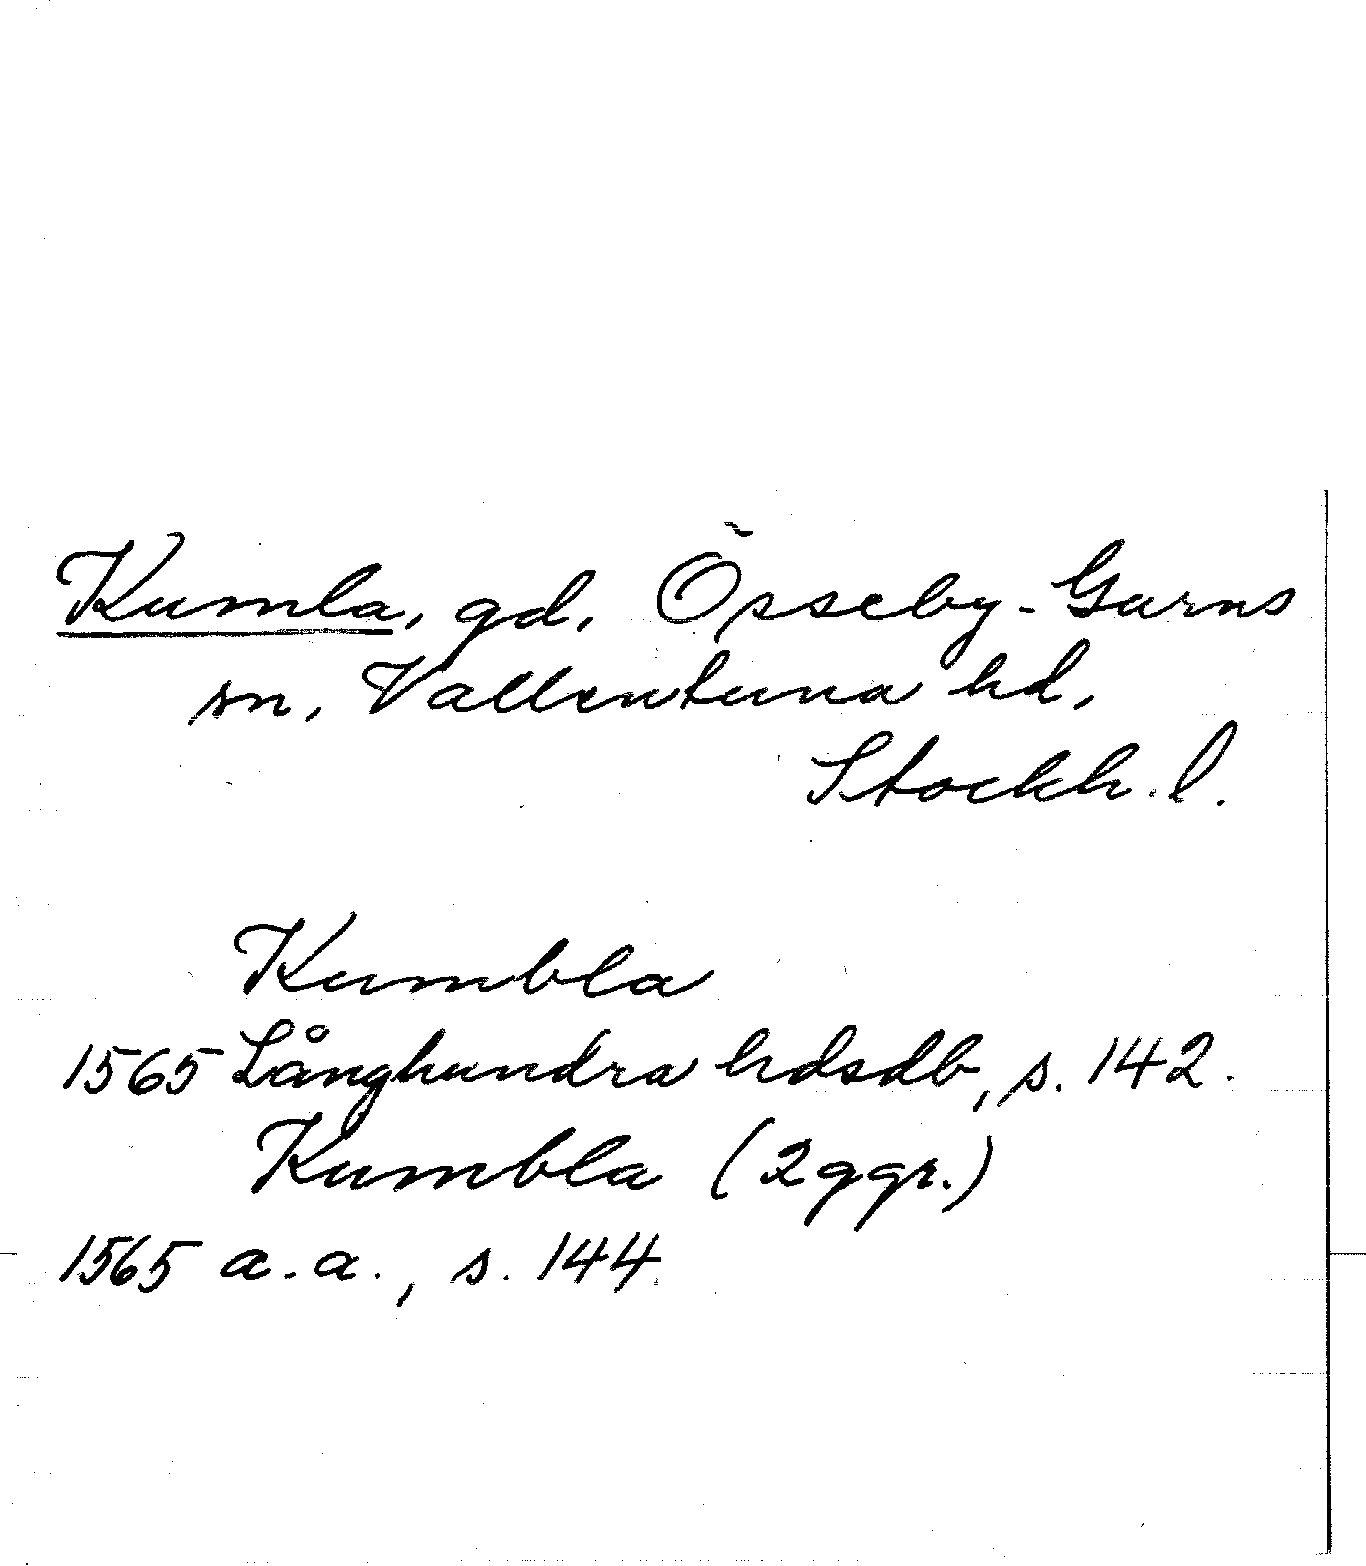 Kumla, gd, Össeby-Garns
sn, Vallentuna hd,
Stockh. l.
Kumbla
1565 Långhundra hdsdb, s. 142.
Kumbla (2 ggr.)
1565 a.a., s. 144